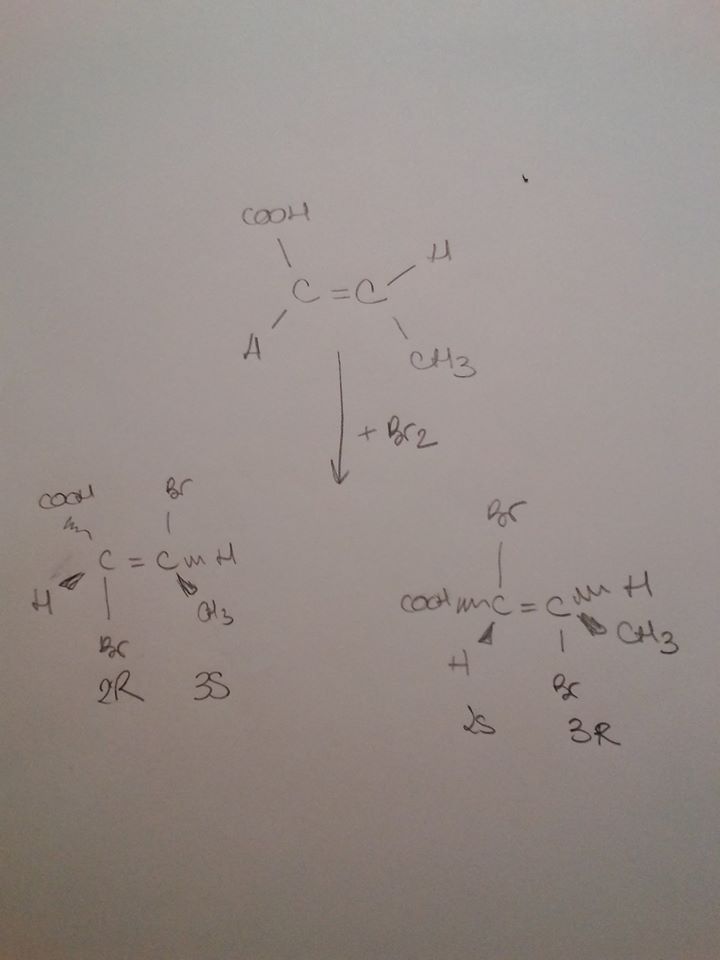 COOH
H
C = C
H
CH3
+ Br2
COOH Br
C = C H
H
CH3
Br
2R 3S
Br
COOH C = C H
CH3
H
Br
2S 3R